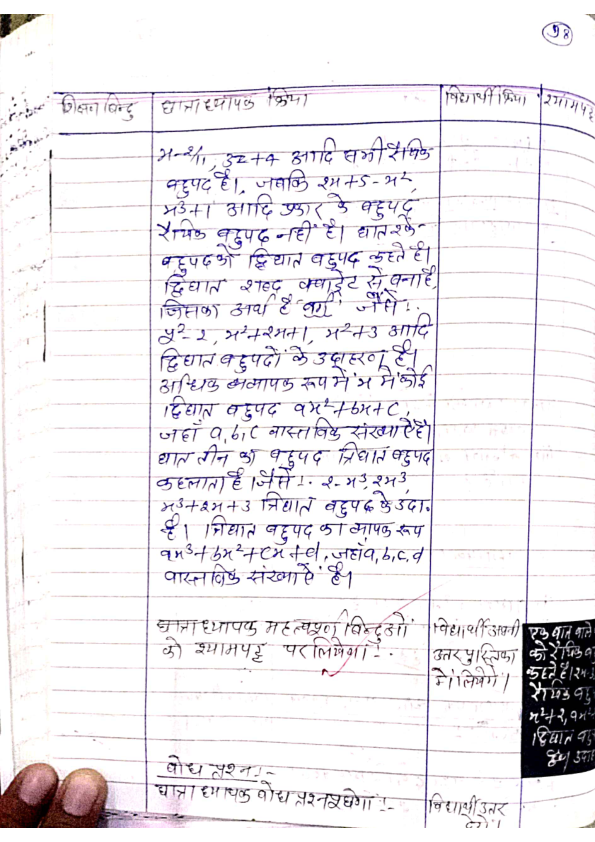 98
शिक्षण बिन्दु छात्राध्यापक क्रिया विद्यार्थी क्रिया श्यामपट्ट
3z+4 आदि सभी रैखिक
बहुपद है। जबकि 2x+5-x²,
x³+1 आदि प्रकार के बहुपद
रैखिक बहुपद नहीं है। घात २ के
बहुपद को द्विघात बहुपद कहते है।
द्विघात शब्द क्वाड्रेट से बना है,
जिसका अर्थ है वर्ग जैसे :-
y²-2, x²+2x+1, x²+3 आदि
द्विघात बहुपदों के उदाहरण है।
अधिक व्यापक रूप में x में कोई
द्विघात बहुपद ax²+bx+c,
जहाँ a,b,c वास्तविक संख्याएँ है।
घात तीन का बहुपद त्रिघात बहुपद
कहलाता है। जैसे :- 2-x³, 2x³,
x³+2x+3 त्रिघात बहुपद के उदा.
है। त्रिघात बहुपद का व्यापक रूप
ax³+bx²+cx+d, जहाँ a,b,c,d
वास्तविक संख्याएँ है।
छात्राध्यापक महत्वपूर्ण बिन्दुओं
को श्यामपट्ट पर लिखेगा :-
विद्यार्थी अपनी
उत्तर पुस्तिका
में लिखेंगे।
एक घात वाले
को रैखिक
कहते है।
रैखिक
x²+2,
द्विघात
है।
बोध प्रश्न :-
छात्राध्यापक बोध प्रश्न पूछेगा :-
विद्यार्थी उत्तर
देंगे।